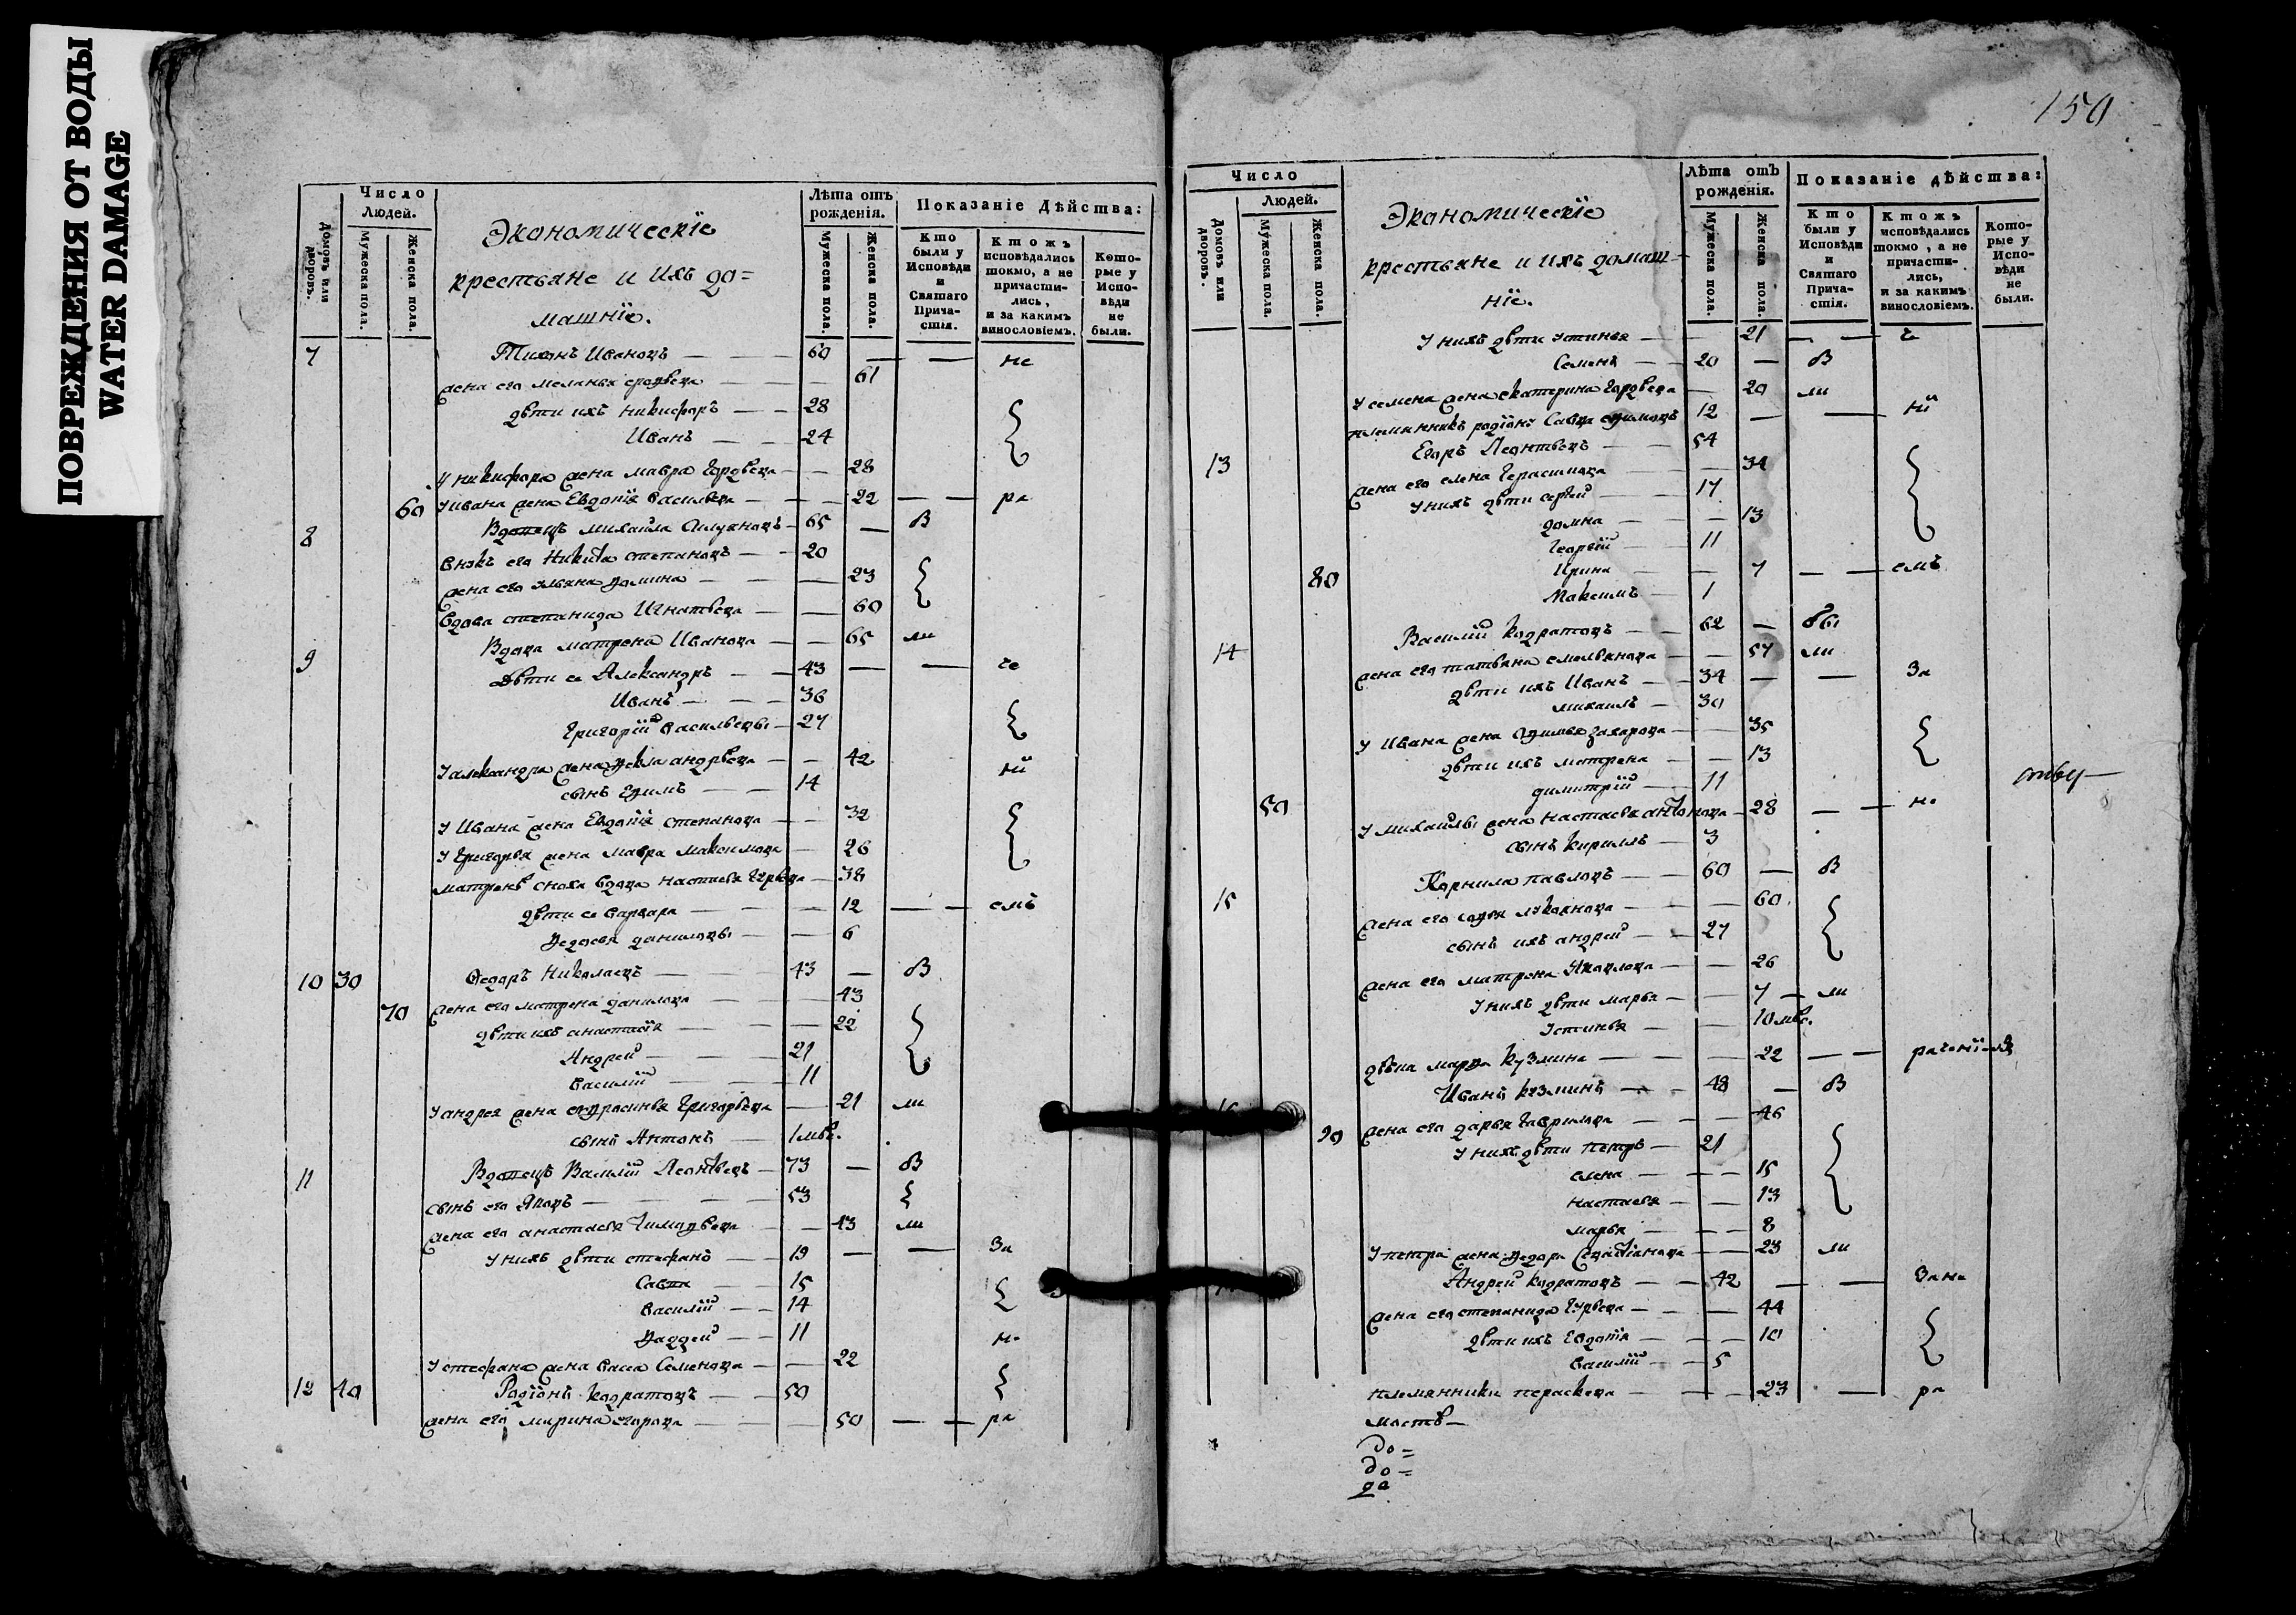 ПОВРЕЖДЕНИЯ ОТ ВОДЫ
WATER DAMAGE
Число
Людей.
Домовъ или дворовъ.
Мужеска пола.
Женска пола.
Экономическїе
крестьяне и ихъ до=
машнїе.
Лѣта отъ рожденія.
Мужеска пола.
Женска пола.
Показаніе Дѣйства:
Кто были у Исповѣди и Святаго Причастія.
Ктожъ исповѣдались токмо, а не причастились, и за какимъ винословіемъ.
Которые у Исповѣди не были.
7 Тихонъ Ивановъ — 60 — — не
жена его меланья — 61
дѣти ихъ никифоръ — 28
Иванъ — 24
У никифора жена мавра — 28
60 У ивана жена Евдокїя васильева — 22 — — ра
8 Вдовецъ михайла — 65 — В
внукъ его Никита степановъ — 20
жена его ульяна — 23
вдова степанида Игнатьева — 60
9 Вдова матрена Иванова — 65 ли
Дѣти ее Александръ — 43 — — че
Иванъ — 36
Григорїй васильевы — 27
У александра жена андрѣева — 42 нїй
сынъ — 14
У Ивана жена Евдокїя степанова — 32
У Григорья жена мавра максимова — 26
матрены сноха вдова настасья — 38
дѣти ее варвара — 12 — — емъ
Федосья даниловы — 6
10 30 Федоръ Николаевъ — 43 — В
70 жена его матрена данилова — 43
дѣти ихъ анастасїя — 22
Андрей — 21
василїй — 11
У андрея жена Григорьева — 21 ли
сынъ Антонъ — 1 мѣс.
11 Вдовецъ Василїй Леонтьевъ — 73 — В
сынъ его Яковъ — 53
жена его анастасья — 43 ли
У нихъ дѣти стефанъ — 19 — — За
Савва — 15
василїй — 14
Фаддей — 11 не
У стефана жена васса Семенова — 22
12 40 Родїонъ кодратовъ — 50
жена его марина егорова — 50 — — ра
150
Число
Людей.
Домовъ или дворовъ.
Мужеска пола.
Женска пола.
Экономическїе
крестьяне и ихъ домаш=
нїе.
Лѣта отъ рожденія.
Мужеска пола.
Женска пола.
Показаніе дѣйства:
Кто были у Исповѣди и Святаго Причастія.
Ктожъ исповѣдались токмо, а не причастились, и за какимъ винословіемъ.
Которые у Исповѣди не были.
У нихъ дѣти устинья — 21 — — ч
Семенъ — 20 — В
У семена жена екатерина — 20 ли
племянникъ родїону Савва — 12 — — нїй
13 Егоръ Леонтьевъ — 54
жена его елена Герасимова — 34
У нихъ дѣти сергей — 17
домна — 13
Георгїй — 11
80 Ирина — 7 — — емъ
Максимъ — 1
14 Василїй кодратовъ — 62 — бы
жена его татьяна емельянова — 57 ли
дѣти ихъ Иванъ — 34 — — За
михаилъ — 30
У Ивана жена захарова — 35
дѣти ихъ матрена — 13
димитрїй — 11
50 У михаилы жена настасья антонова — 28 — — не
сынъ кириллъ — 3
15 Корнила павловъ — 60 — В
жена его софья лукоянова — 60
сынъ ихъ андрей — 27
жена его матрена — 26
У нихъ дѣти марья — 7 — ли
Устинья — 10 мѣс.
дѣвка марфа кузмина — 22 — —
Иванъ кузминъ — 48 — В
90 жена его дарья гаврилова — 46
У нихъ дѣти петръ — 21
елена — 15
настасья — 13
марья — 8
У петра жена федора — 23 ли
Андрей кодратовъ — 42 — — За не
жена его степанида — 44
дѣти ихъ Евдокїя — 10
василїй — 5
племянники параскева — 23 — ра